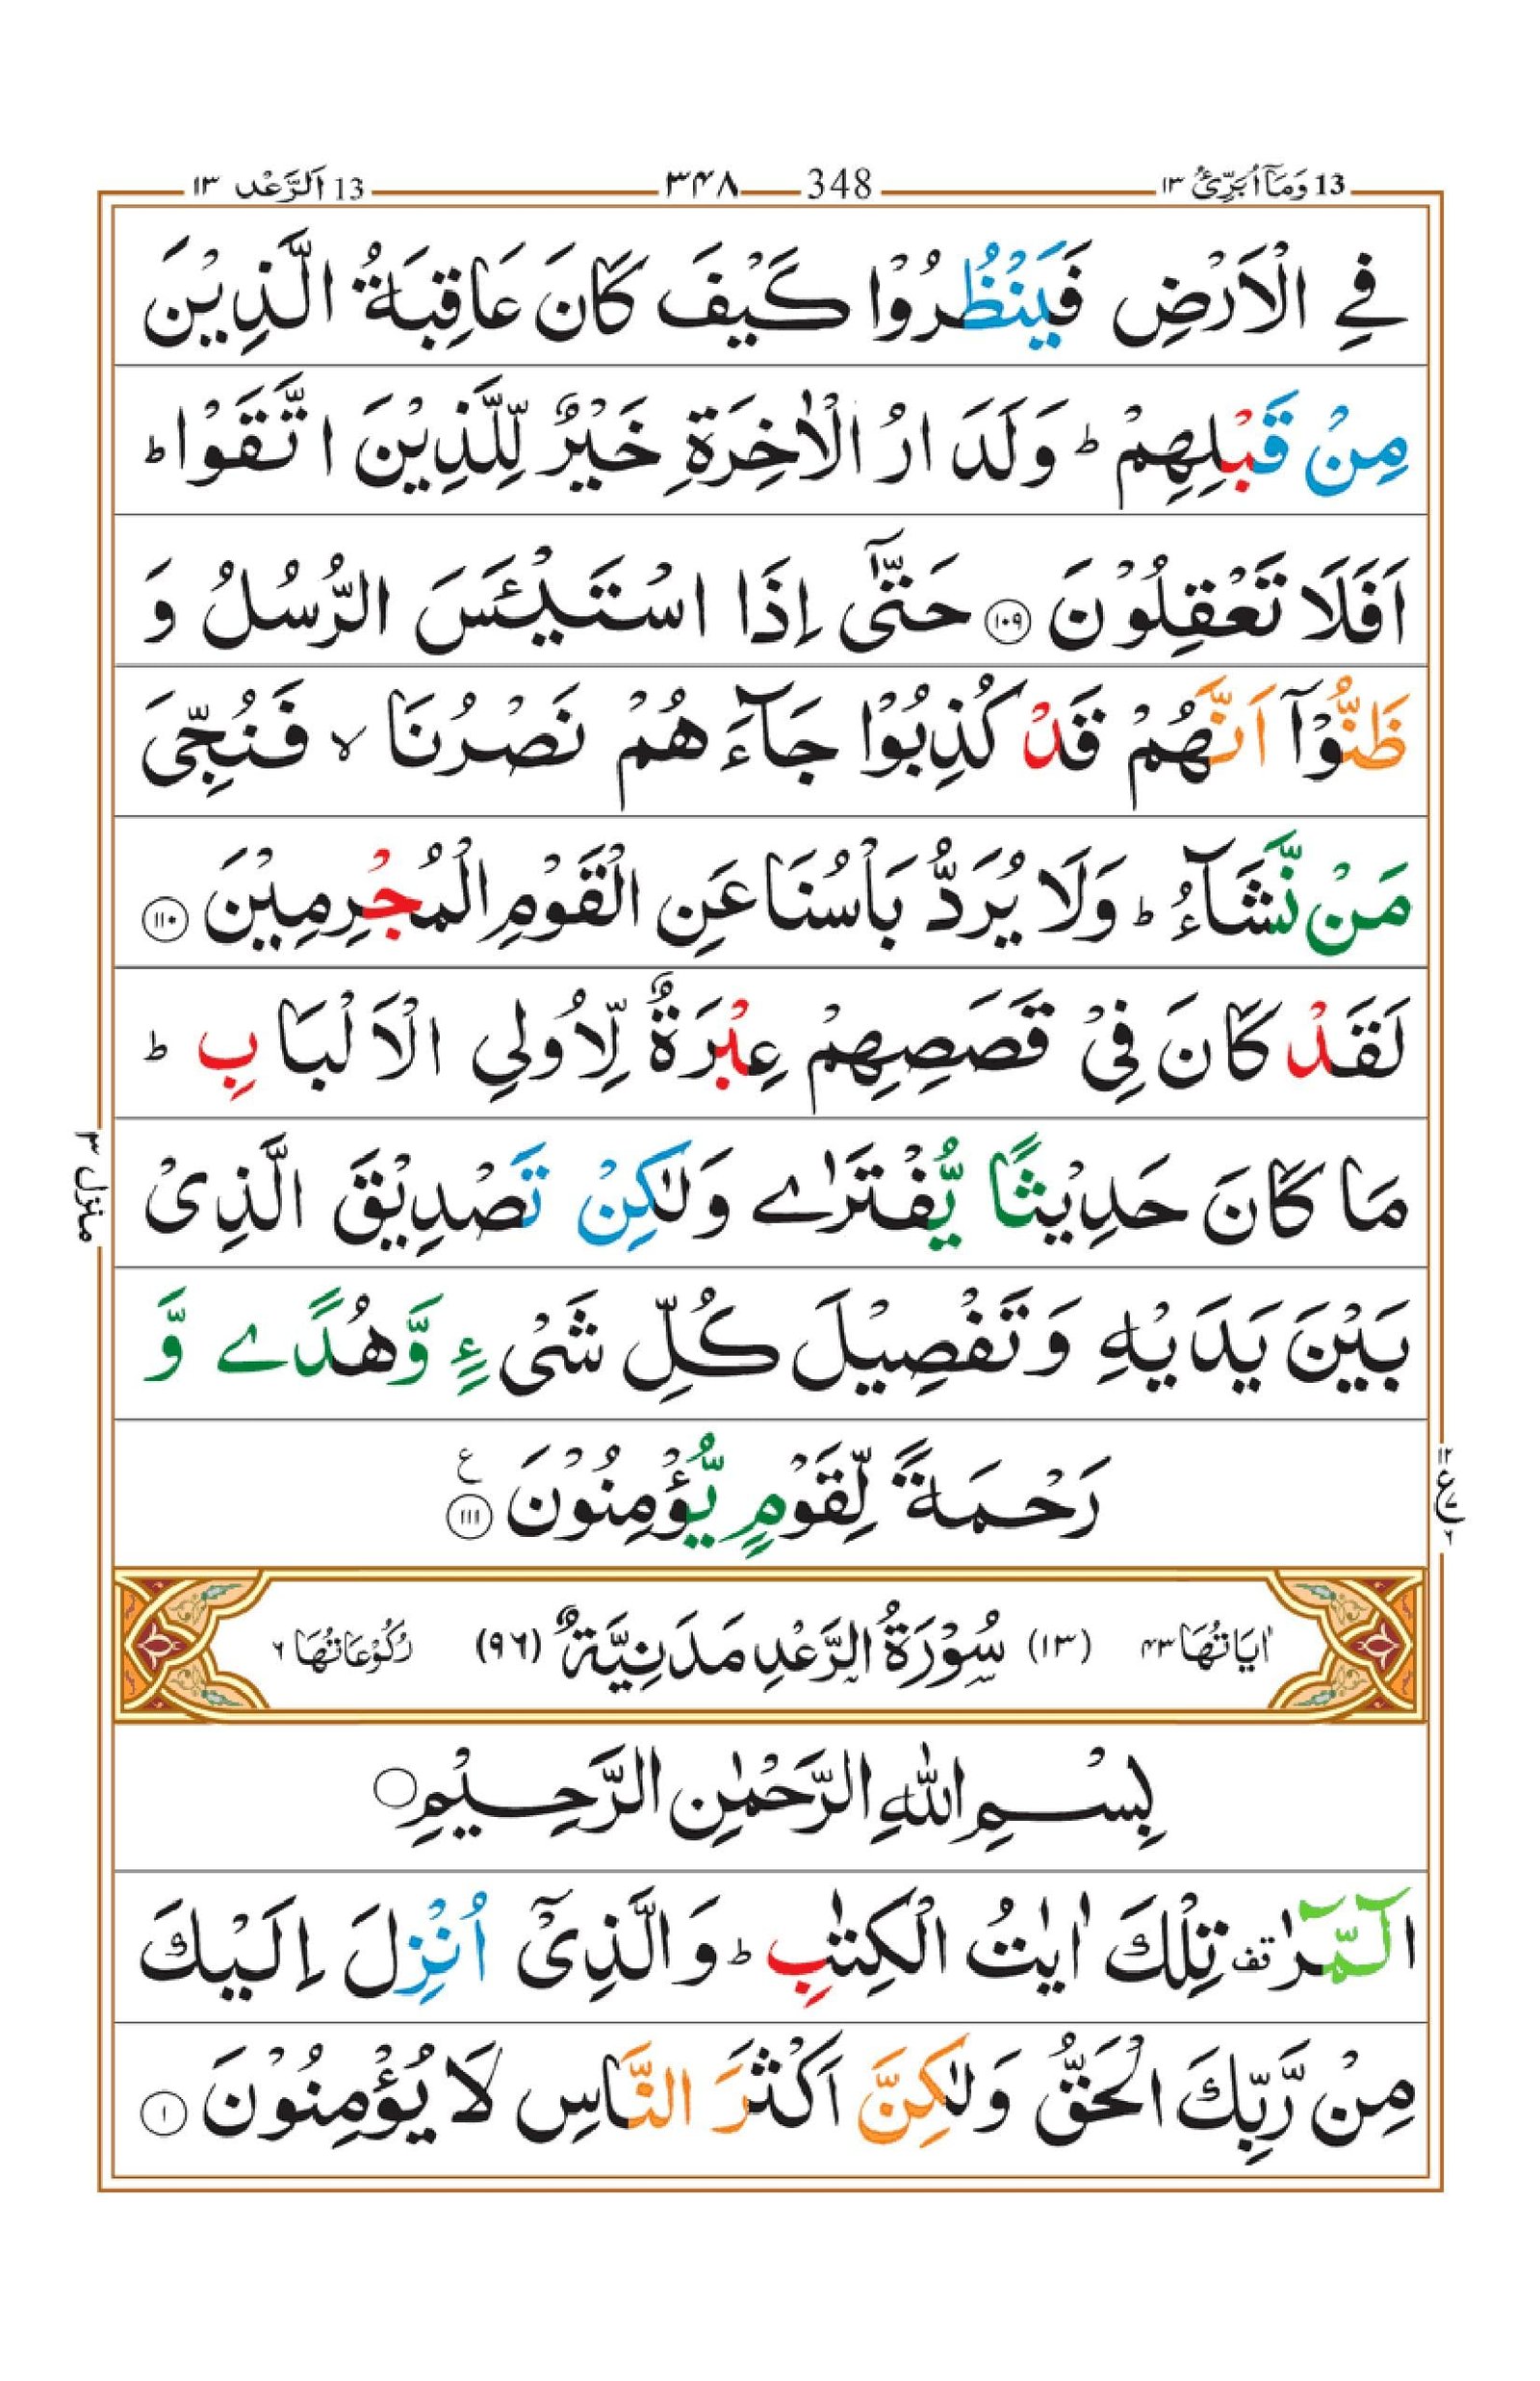 13 وَمَآ اُبَرِّئُ ۱۳ 348 ۳۴۸ 13 اَلرَّعْد ۱۳
فِے الْاَرْضِ فَيَنْظُرُوْا كَيْفَ كَانَ عَاقِبَةُ الَّذِيْنَ
مِنْ قَبْلِهِمْ ؕ وَلَدَارُ الْاٰخِرَةِ خَيْرٌ لِّلَّذِيْنَ اتَّقَوْا ؕ
اَفَلَا تَعْقِلُوْنَ ۝۱۰۹ حَتّٰٓى اِذَا اسْتَيْـَٔسَ الرُّسُلُ وَ
ظَنُّوْٓا اَنَّهُمْ قَدْ كُذِبُوْا جَآءَهُمْ نَصْرُنَا ۙ فَنُجِّىَ
مَنْ نَّشَآءُ ؕ وَلَا يُرَدُّ بَاْسُنَا عَنِ الْقَوْمِ الْمُجْرِمِيْنَ ۝۱۱۰
لَقَدْ كَانَ فِىْ قَصَصِهِمْ عِبْرَةٌ لِّاُولِى الْاَلْبَابِ ؕ
مَا كَانَ حَدِيْثًا يُّفْتَرٰے وَلٰكِنْ تَصْدِيْقَ الَّذِىْ
بَيْنَ يَدَيْهِ وَتَفْصِيْلَ كُلِّ شَىْءٍ وَّهُدًے وَّ
رَحْمَةً لِّقَوْمٍ يُّؤْمِنُوْنَ ۝۱۱۱ ع
۱۲ ع ۷ ۶
منزل ۳
اٰيَاتُهَا ۴۳ (۱۳) سُوْرَةُ الرَّعْدِ مَدَنِيَّةٌ (۹۶) رُكُوْعَاتُهَا ۶
بِسْمِ اللّٰهِ الرَّحْمٰنِ الرَّحِيْمِ ۝
الٓمّٓرٰ ࣞ تِلْكَ اٰيٰتُ الْكِتٰبِ ؕ وَالَّذِىْٓ اُنْزِلَ اِلَيْكَ
مِنْ رَّبِّكَ الْحَقُّ وَلٰكِنَّ اَكْثَرَ النَّاسِ لَا يُؤْمِنُوْنَ ۝۱